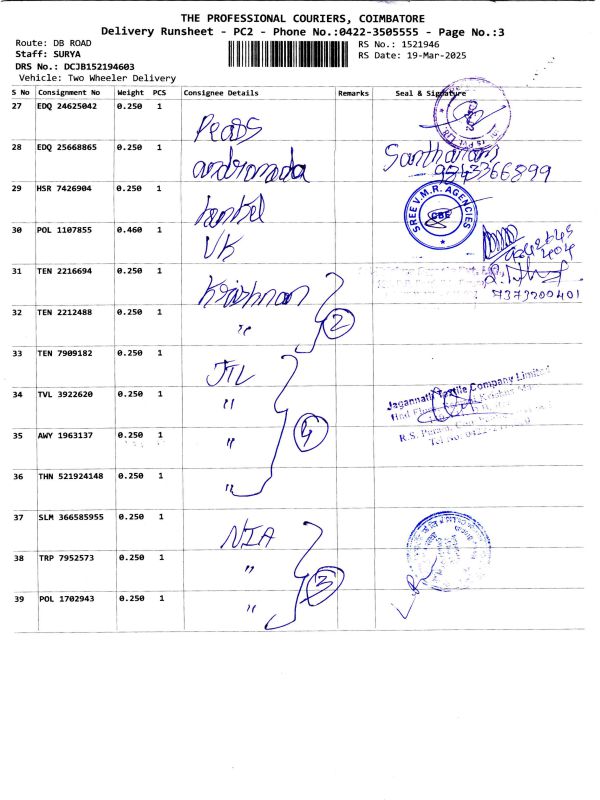 THE PROFESSIONAL COURIERS, COIMBATORE
Delivery Runsheet - PC2 - Phone No.:0422-3505555 - Page No.:3
Route: DB ROAD
RS No.: 1521946
Staff: SURYA
RS Date: 19-Mar-2025
DRS No.: DCJB152194603
Vehicle: Two Wheeler Delivery
S No Consignment No Weight PCS Consignee Details Remarks Seal & Signature
27 EDQ 24625042 0.250 1
28 EDQ 25668865 0.250 1 andromada Santharam
9843366899
29 HSR 7426904 0.250 1 SREE V.M.R. AGENCIES CBE
30 POL 1107855 0.460 1 VK
31 TEN 2216694 0.250 1 Krishnan
7373200401
32 TEN 2212488 0.250 1 " 2
33 TEN 7909182 0.250 1 JTL
34 TVL 3922620 0.250 1 " Jagannath Textile Company Limited
35 AWY 1963137 0.250 1 " 4
R.S. Puram,
36 THN 521924148 0.250 1 "
37 SLM 366585955 0.250 1 NIA
38 TRP 7952573 0.250 1 " 3
39 POL 1702943 0.250 1 "